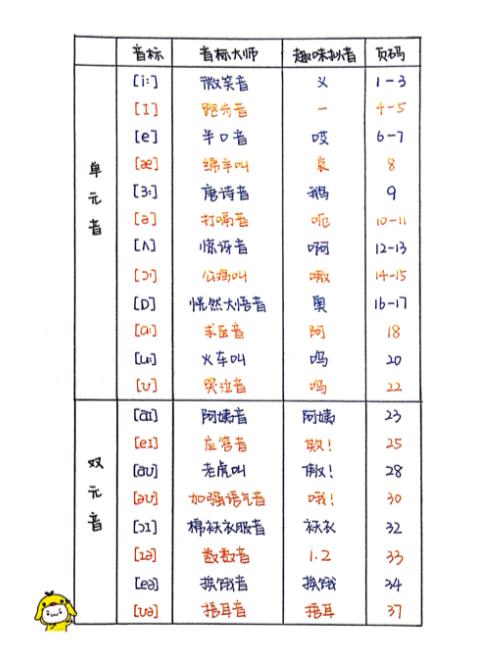 音标 音标大师 趣味拟音 页码
单元音
[iː] 微笑音 义 1-3
[I] 跑步音 一 4-5
[e] 半口音 哎 6-7
[æ] 绵羊叫 哀 8
[ɜː] 唐诗音 鹅 9
[ə] 打嗝音 呃 10-11
[ʌ] 惊讶音 啊 12-13
[ɔː] 公鸡叫 嗷 14-15
[ɒ] 恍然大悟音 奥 16-17
[ɑː] 求医音 阿 18
[uː] 火车叫 呜 20
[ʊ] 哭泣音 呜 22
双元音
[aɪ] 阿姨音 阿姨 23
[eɪ] 应答音 欸! 25
[aʊ] 老虎叫 傲! 28
[əʊ] 加强语气音 哦! 30
[ɔɪ] 棉袄衣服音 袄衣 32
[ɪə] 数数音 1.2 33
[eə] 挨饿音 挨饿 34
[ʊə] 捂耳音 捂耳 37